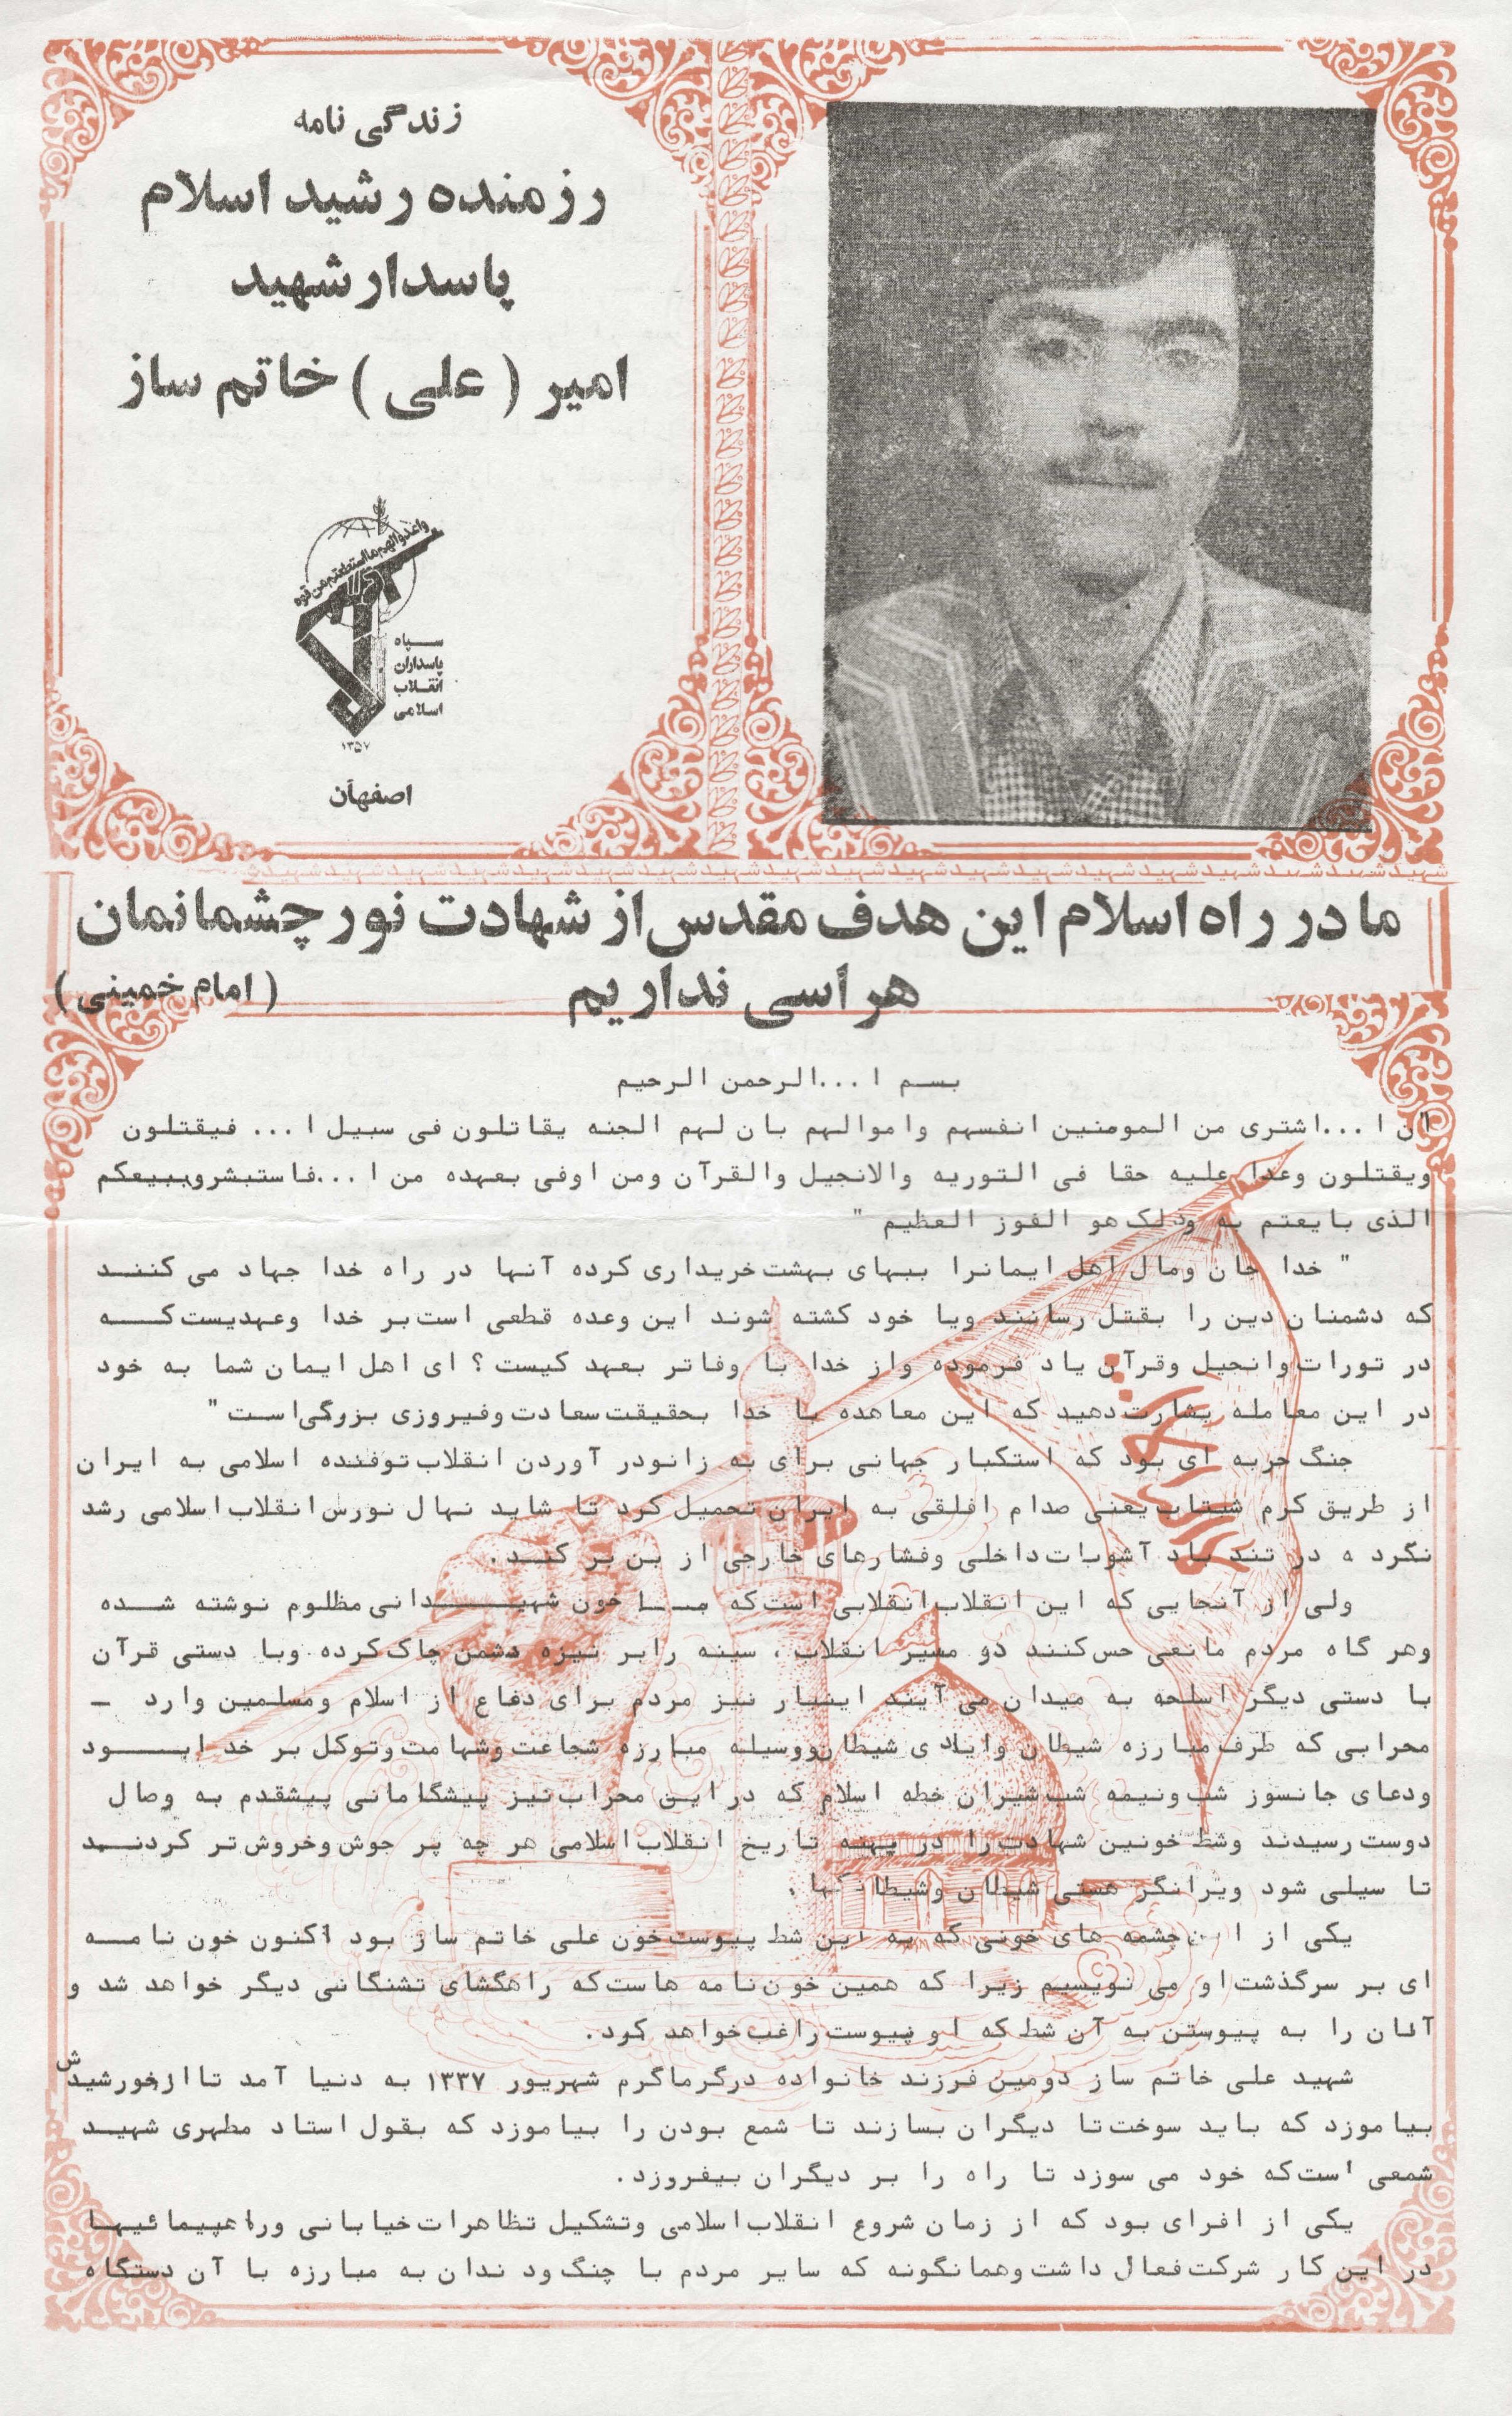 زندگی نامه
رزمنده رشید اسلام
پاسدار شهید
امیر ( علی ) خاتم ساز
واعدوالهم مااستطعتم من قوه
سپاه
پاسداران
انقلاب
اسلامی
۱۳۵۷
اصفهان
شهید شهید شهید شهید شهید شهید شهید شهید شهید شهید شهید شهید شهید شهید
ما در راه اسلام این هدف مقدس از شهادت نور چشمانمان
هراسی نداریم
( امام خمینی )
بسم ا...الرحمن الرحیم
"ان ا...اشتری من المومنین انفسهم واموالهم بان لهم الجنه یقاتلون فی سبیل ا... فیقتلون
ویقتلون وعدا علیه حقا فی التوریه والانجیل والقرآن ومن اوفی بعهده من ا...فاستبشروببیعکم
الذی بایعتم به وذلک هو الفوز العظیم "
" خدا جان ومال اهل ایمانرا ببهای بهشت خریداری کرده آنها در راه خدا جهاد می کنند
که دشمنان دین را بقتل رسانند ویا خود کشته شوند این وعده قطعی است بر خدا وعهدیست که
در تورات وانجیل وقرآن یاد فرموده واز خدا با وفاتر بعهد کیست ؟ ای اهل ایمان شما به خود
در این معامله بشارت دهید که این معاهده با خدا بحقیقت سعادت وفیروزی بزرگی است "
جنگ حربه ای بود که استکبار جهانی برای به زانودر آوردن انقلاب توفنده اسلامی به ایران
از طریق کرم شبتاب یعنی صدام افلقی به ایران تحمیل کرد تا شاید نهال نورس انقلاب اسلامی رشد
نگرد ه در تند باد آشوبات داخلی وفشارهای خارجی از بن بر کند .
ولی از آنجایی که این انقلاب انقلابی است که با خون شهیدانی مظلوم نوشته شده
وهر گاه مردم مانعی حس کنند در مسیر انقلاب ، سینه رابر نیزه دشمن چاک کرده وبا دستی قرآن
با دستی دیگر اسلحه به میدان می آیند اینبار نیز مردم برای دفاع از اسلام ومسلمین وارد -
محرابی که طرف مبارزه شیطان وایادی شیطان ووسیله مبارزه شجاعت وشهامت وتوکل بر خدابود
ودعای جانسوز شب ونیمه شب شیران خطه اسلام که در این محراب نیز پیشگامانی پیشقدم به وصال
دوست رسیدند وشط خونین شهادت را در پهنه تاریخ انقلاب اسلامی هر چه پر جوش وخروش تر کردند
تا سیلی شود ویرانگر هستی شیطان وشیطانکها .
یکی از این چشمه های خونی که به این شط پیوست خون علی خاتم ساز بود اکنون خون نامه
ای بر سرگذشت او می نویسیم زیرا که همین خون نامه هاست که راهگشای تشنگانی دیگر خواهد شد و
آنان را به پیوستن به آن شط که او پیوست راغب خواهد کرد.
شهید علی خاتم ساز دومین فرزند خانواده درگرماگرم شهریور ۱۳۳۷ به دنیا آمد تا ازخورشیدش
بیاموزد که باید سوخت تا دیگران بسازند تا شمع بودن را بیاموزد که بقول استاد مطهری شهید
شمعی است که خود می سوزد تا راه را بر دیگران بیفروزد.
یکی از افرای بود که از زمان شروع انقلاب اسلامی وتشکیل تظاهرات خیابانی وراهپیمائیها
در این کار شرکت فعال داشت وهمانگونه که سایر مردم با چنگ ود ندان به مبارزه با آن دستگاه